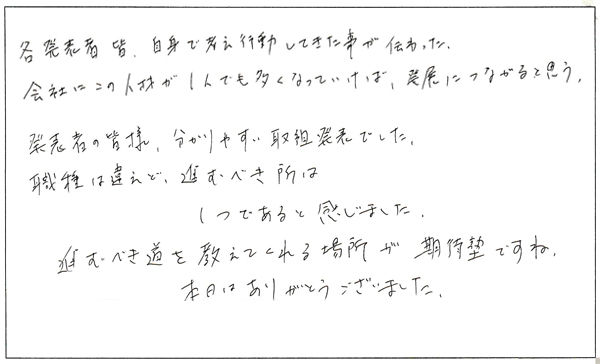 各発表者皆、自身で考え行動してきた事が伝わった。
会社にこの人材が1人でも多くなっていけば、発展につながると思う。
発表者の皆様、分かりやすい取組発表でした。
職種は違えど、進むべき所は
1つであると感じました。
進むべき道を教えてくれる場所が期待塾ですね。
本日はありがとうございました。